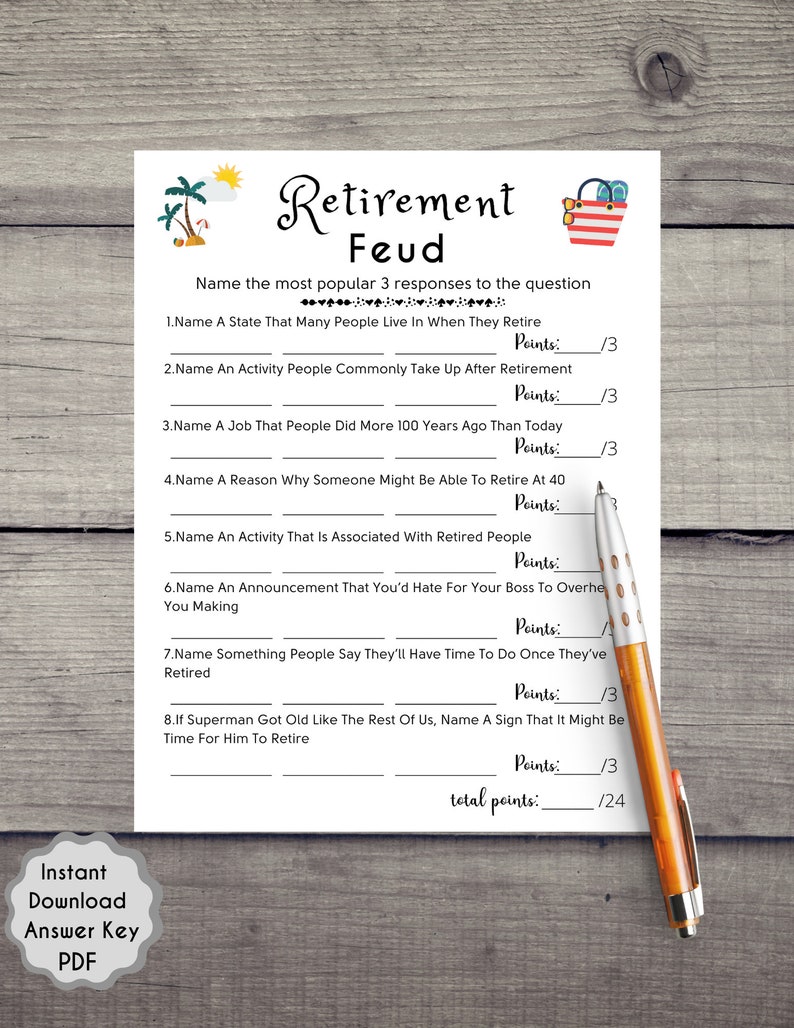 Retirement
Feud
Name the most popular 3 responses to the question
1.Name A State That Many People Live In When They Retire
Points:_____/3
2.Name An Activity People Commonly Take Up After Retirement
Points:_____/3
3.Name A Job That People Did More 100 Years Ago Than Today
Points:_____/3
4.Name A Reason Why Someone Might Be Able To Retire At 40
Points:_____
5.Name An Activity That Is Associated With Retired People
Points:_____
6.Name An Announcement That You'd Hate For Your Boss To
You Making
Points:_____/
7.Name Something People Say They'll Have Time To Do Once They've
Retired
Points:_____/3
8.If Superman Got Old Like The Rest Of Us, Name A Sign That It Might Be
Time For Him To Retire
Points:_____/3
total points:______ /24
Instant
Download
Answer Key
PDF